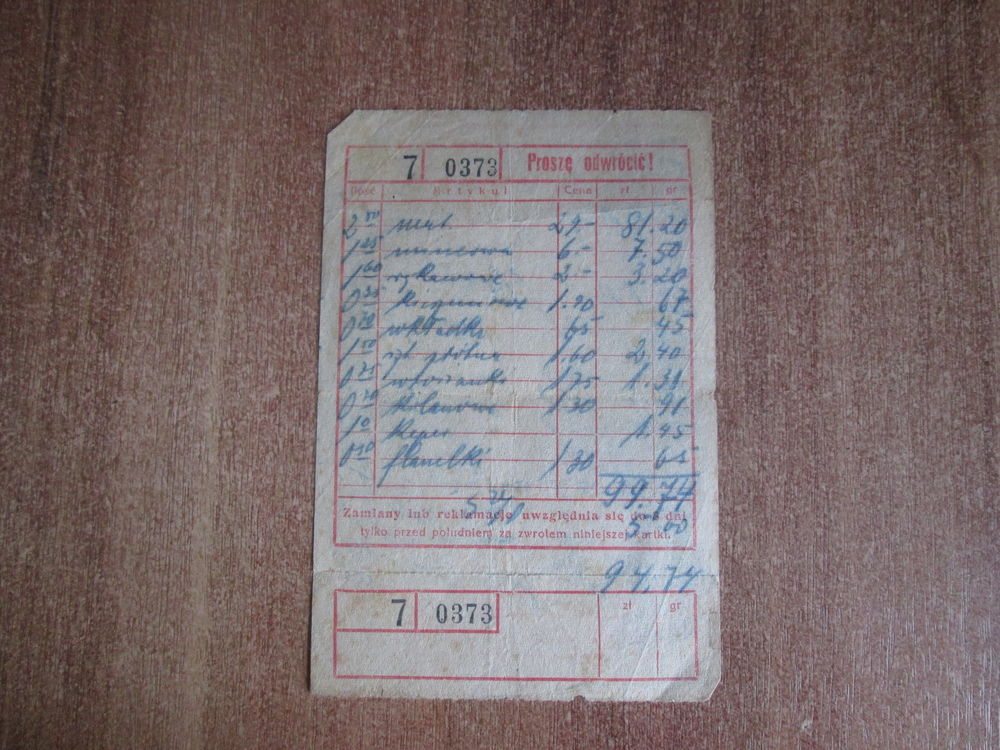 7 0373 Proszę odwrócić!
Ilość Artykuł Cena zł gr
2 80 mat. 29.- 81.20
1 25 6.- 7.50
1 60 rękawowe 2.- 3.20
0 35 kieszeniowe 1.90 67
0 70 wkładki 65 45
1 50 1.60 2.40
0 75 włosianki 1 75 1.31
0 70 1 30 91
1.45
0 50 flanelki 1 30 65
99.74
Zamiany lub reklamacje uwzględnia się do 3 dni
5.00
tylko przed południem za zwrotem niniejszej kartki.
94.74
7 0373 zł gr